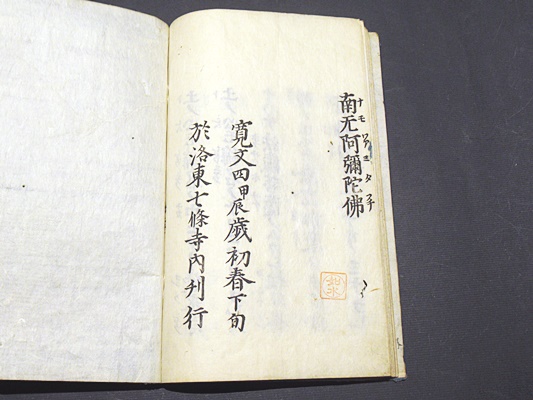 南无阿彌陀佛
ナモ
タ
寛文四甲辰歳初春下旬
於洛東七條寺内刊行